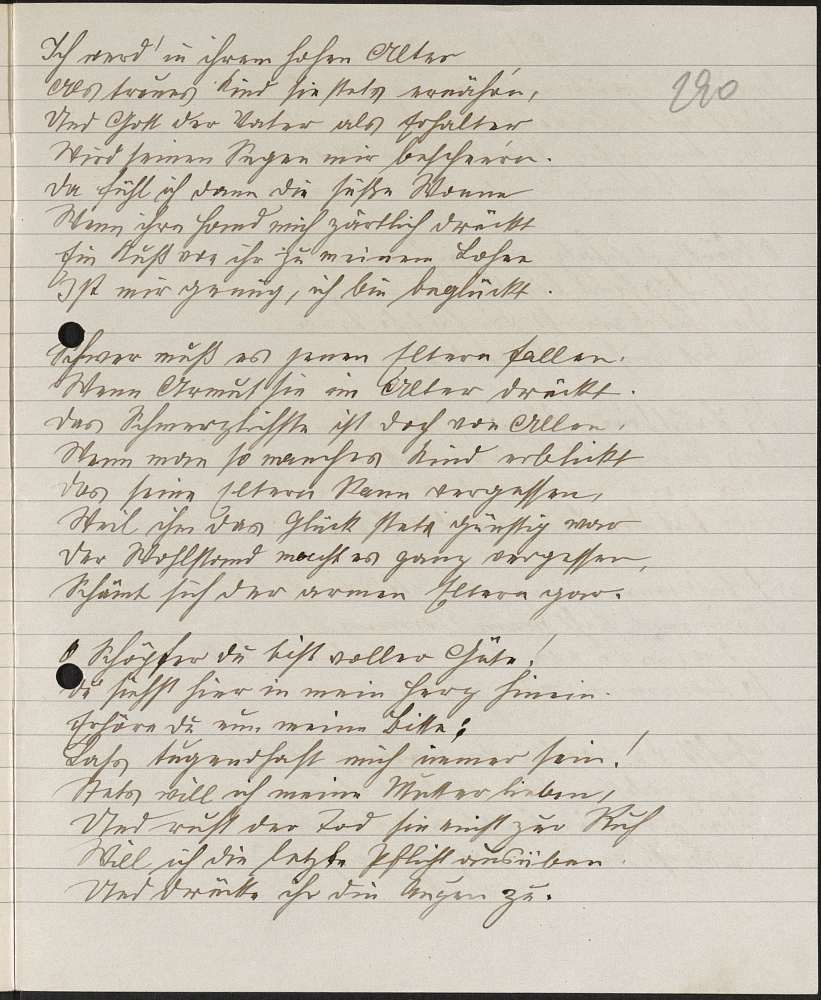 Ich werd' in ihrem hohen Alter
Als treues Kind sie stets ernährn,
190
Und Gott der Vater als Erhalter
Wird seinen Segen mir bescheern.
Da fühl ich dann die süße Wonne
Wenn ihre Hand mich zärtlich drückt
Ein Kuß von ihr zu meinem Lohne
Ist mir genug, ich bin beglückt.
Schwer muß es jenen Eltern fallen.
Wenn Armut sie im Alter drückt.
Das Schmerzlichste ist doch von Allen,
Wenn man so manches Kind erblickt
Das seine Eltern kann vergessen,
Weil ihm das Glück stets günstig war
Der Wohlstand macht es ganz vergessen,
Schämt sich der armen Eltern gar.
O Schöpfer du bist voller Güte!
Du siehst hier in mein Herz hinein.
Erhöre du nun meine Bitte;
Lass tugendhaft mich immer sein!
Stets will ich meine Mutter lieben,
Und ruft der Tod sie einst zur Ruh
Will ich die letzte Pflicht ausüben.
Und drücke ihr die Augen zu.